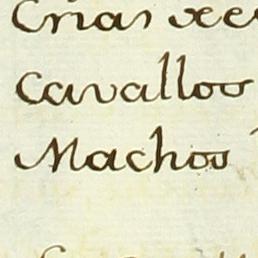 Crias de
Cavallos
Machos